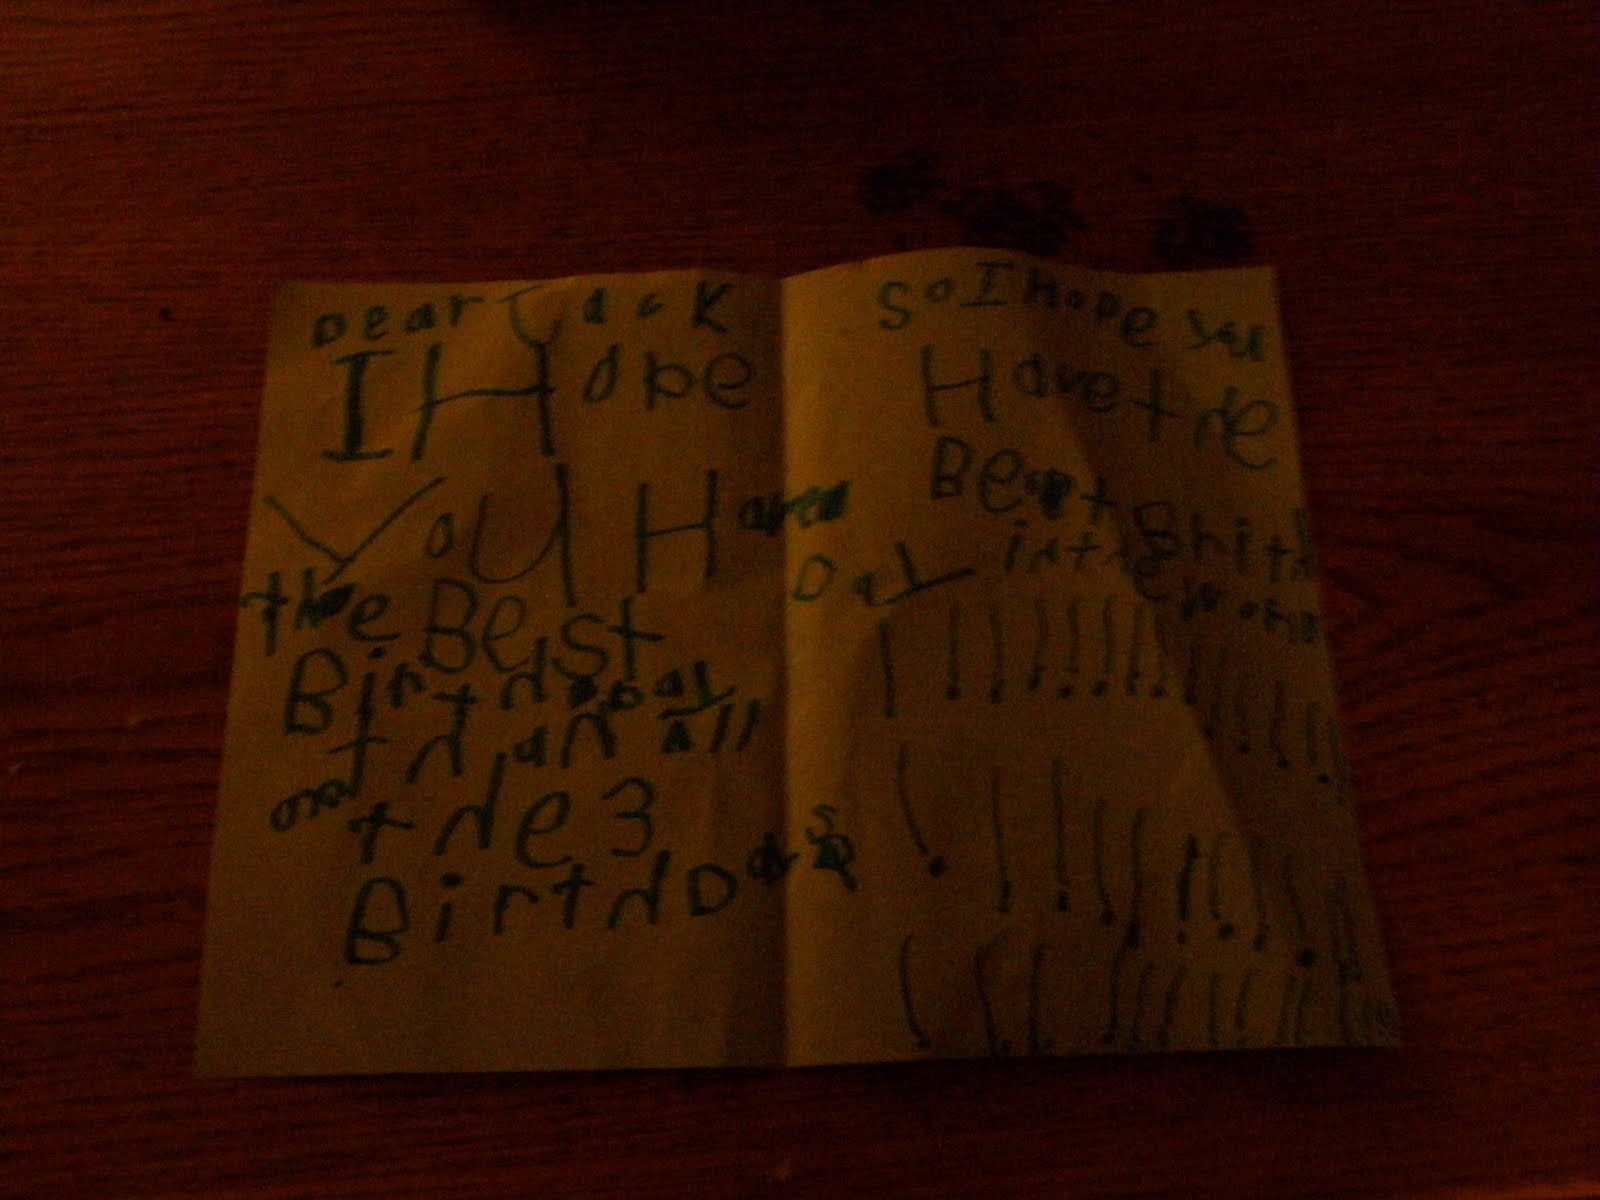 Dear Jack
I Hope
You Have
the Best
Birthday
than All
the 3
BirthDays
So I Hope you
Have the
Best Brith
Day in the world
! ! ! ! ! ! ! ! ! ! ! ! ! !
! ! ! ! ! ! ! ! ! ! ! !
! ! ! ! ! ! ! ! ! ! ! !